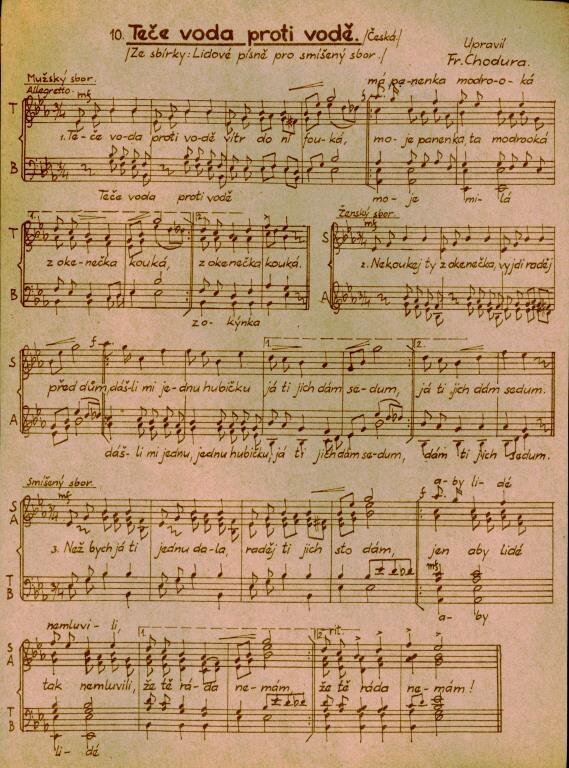 10. Teče voda proti vodě. /Česká/
/Ze sbírky: Lidové písně pro smíšený sbor./
Upravil
Fr. Chodura.
Mužský sbor.
Allegretto.
mf
má pa-nenka modro-o-ká
f
T
1. Te-če vo-da proti vo-dě vítr do ní fou-ká, mo-je panenka, ta modrooká
B
Teče voda proti vodě mo-je mi-lá
1. 2.
Ženský sbor.
mf
T S
z oke-nečka kouká, z okenečka kouká. 2. Nekoukej ty z okenečka, vyjdi raděj
B A
z o-kýnka
f 1. 2.
S
před dům, dáš-li mi je-dnu hubičku já ti jich dám se-dum, já ti jich dám sedum.
A
dáš-li mi jednu, jednu hubičku, já ti jich dám se-dum, dám ti jich sedum.
Smíšený sbor.
mf
a-by li-dé
f
S
A
3. Než bych já ti jednu da-la, raděj ti jich sto dám, jen aby lidé
mf
T
B
a-by
nemluvi-li,
1. 2. rit.
S
A
tak nemluvili, že tě rá-da ne-mám, že tě ráda ne-mám!
T
B
li-dé